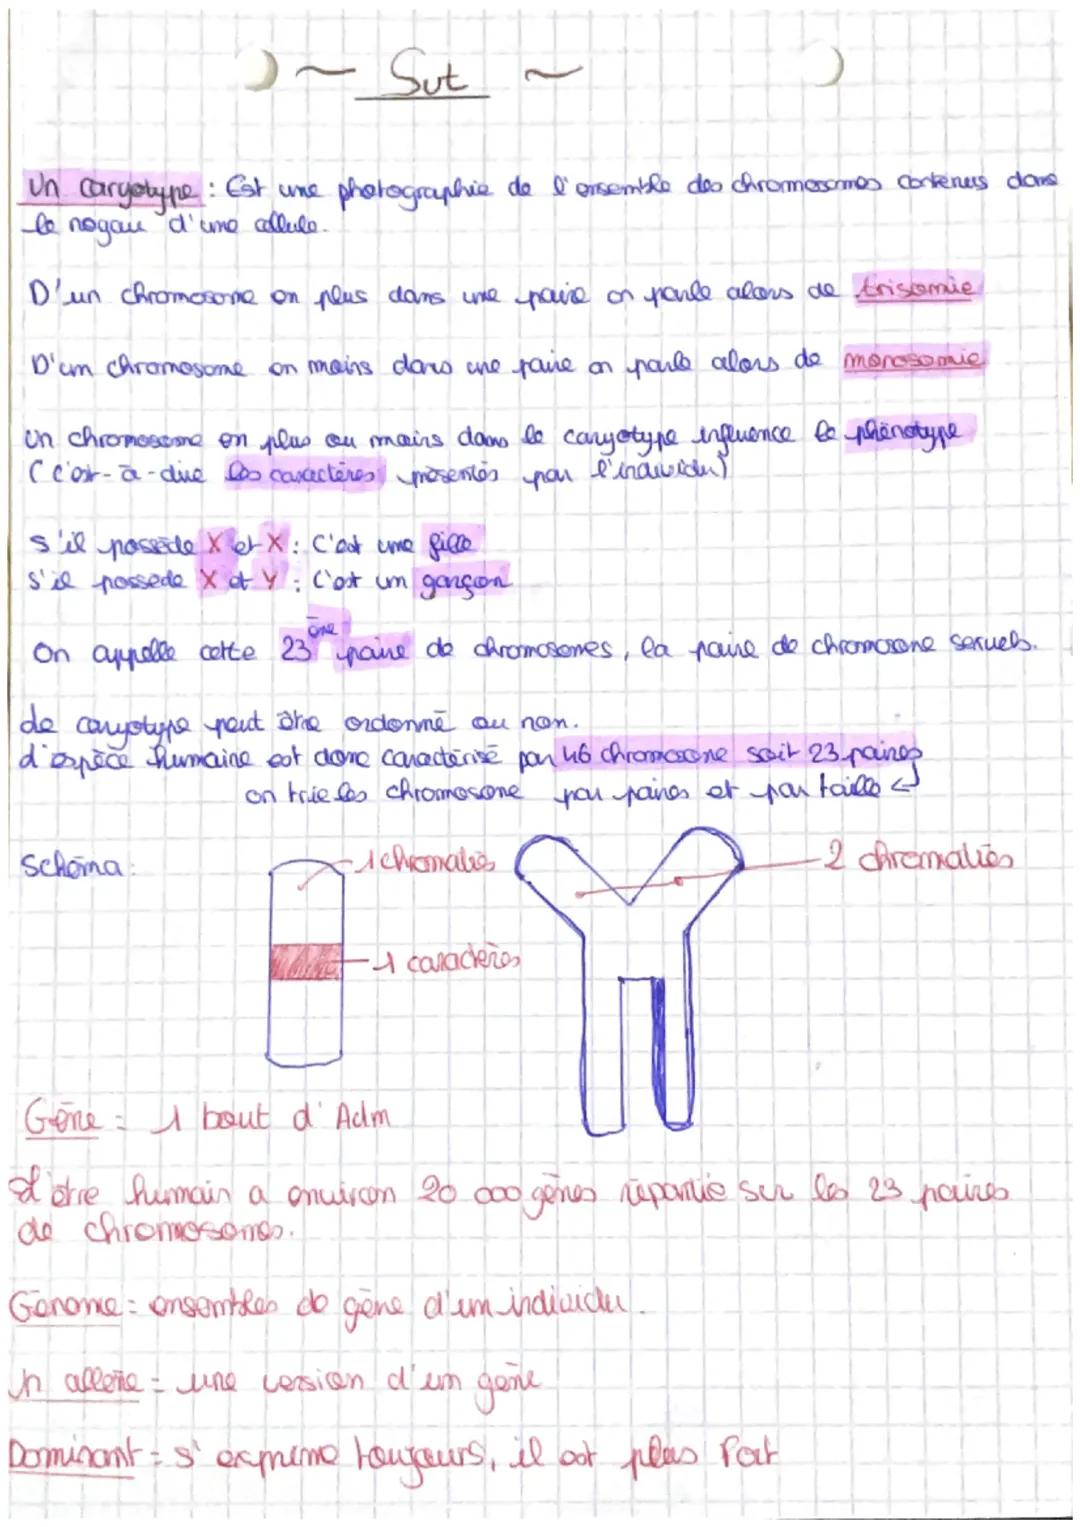 ~ Svt ~
Un caryotype : Est une photographie de l'ensemble des chromosomes contenus dans
le noyau d'une cellule.
D'un chromosome en plus dans une paire on parle alors de trisomie
D'un chromosome en moins dans une paire on parle alors de monosomie
Un chromosome en plus ou moins dans le caryotype influence le phénotype
(c'est-à-dire les caractères présentés par l'individu)
s'il possède X et X : C'est une fille
s'il possede X et Y : C'est un garçon
On appelle cette 23ème paire de chromosomes, la paire de chromosome sexuels.
Le caryotype peut être ordonné ou non.
L'espèce humaine est donc caractérisé par 46 chromosome soit 23 paires
on trie les chromosome par paires et par taille ↵
Schéma :
1 chromaties
2 chromaties
1 caractères
Gène = 1 bout d'Adm
L'être humain a environ 20 000 gènes répartie sur les 23 paires
de chromosomes.
Génome = ensembles de gène d'un individu.
Un allèle = une version d'un gène
Dominant = s'exprime toujours, il est plus fort